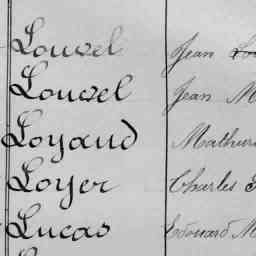 Louvel Jean
Louvel Jean M
Loyaud Mathur
Loyer Charles
Lucas Edouard M